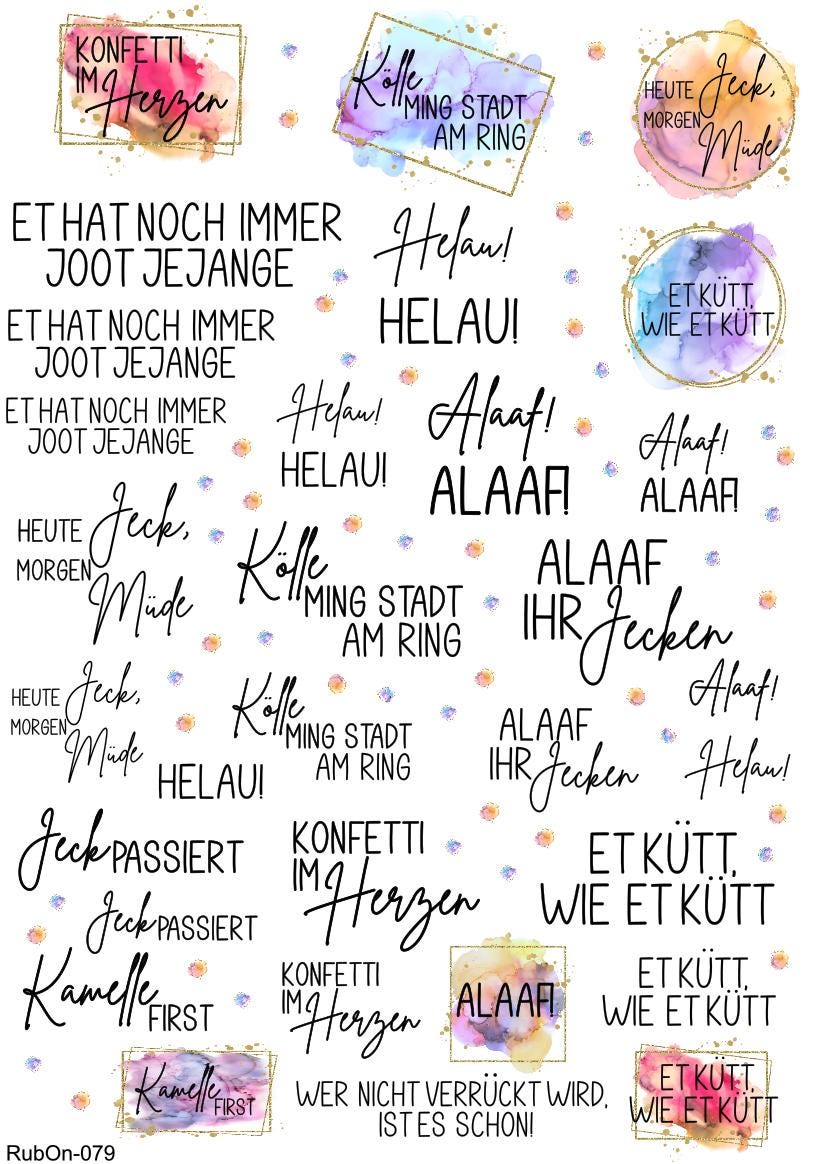 KONFETTI
IM Herzen
Kölle
MING STADT
AM RING
HEUTE Jeck,
MORGEN
Müde
ET HAT NOCH IMMER
JOOT JEJANGE
Helau!
HELAU!
ET KÜTT,
WIE ET KÜTT
ET HAT NOCH IMMER
JOOT JEJANGE
ET HAT NOCH IMMER
JOOT JEJANGE
Helau!
HELAU!
Alaaf!
ALAAF!
Alaaf!
ALAAF!
HEUTE Jeck,
MORGEN
Müde
Kölle
MING STADT
AM RING
ALAAF
IHR Jecken
HEUTE Jeck,
MORGEN
Müde
Kölle
MING STADT
AM RING
HELAU!
ALAAF
IHR Jecken
Alaaf!
Helau!
Jeck PASSIERT
KONFETTI
IM Herzen
ET KÜTT,
WIE ET KÜTT
Jeck PASSIERT
Kamelle
FIRST
KONFETTI
IM Herzen
ALAAF!
ET KÜTT,
WIE ET KÜTT
Kamelle
FIRST
WER NICHT VERRÜCKT WIRD,
IST ES SCHON!
ET KÜTT,
WIE ET KÜTT
RubOn-079